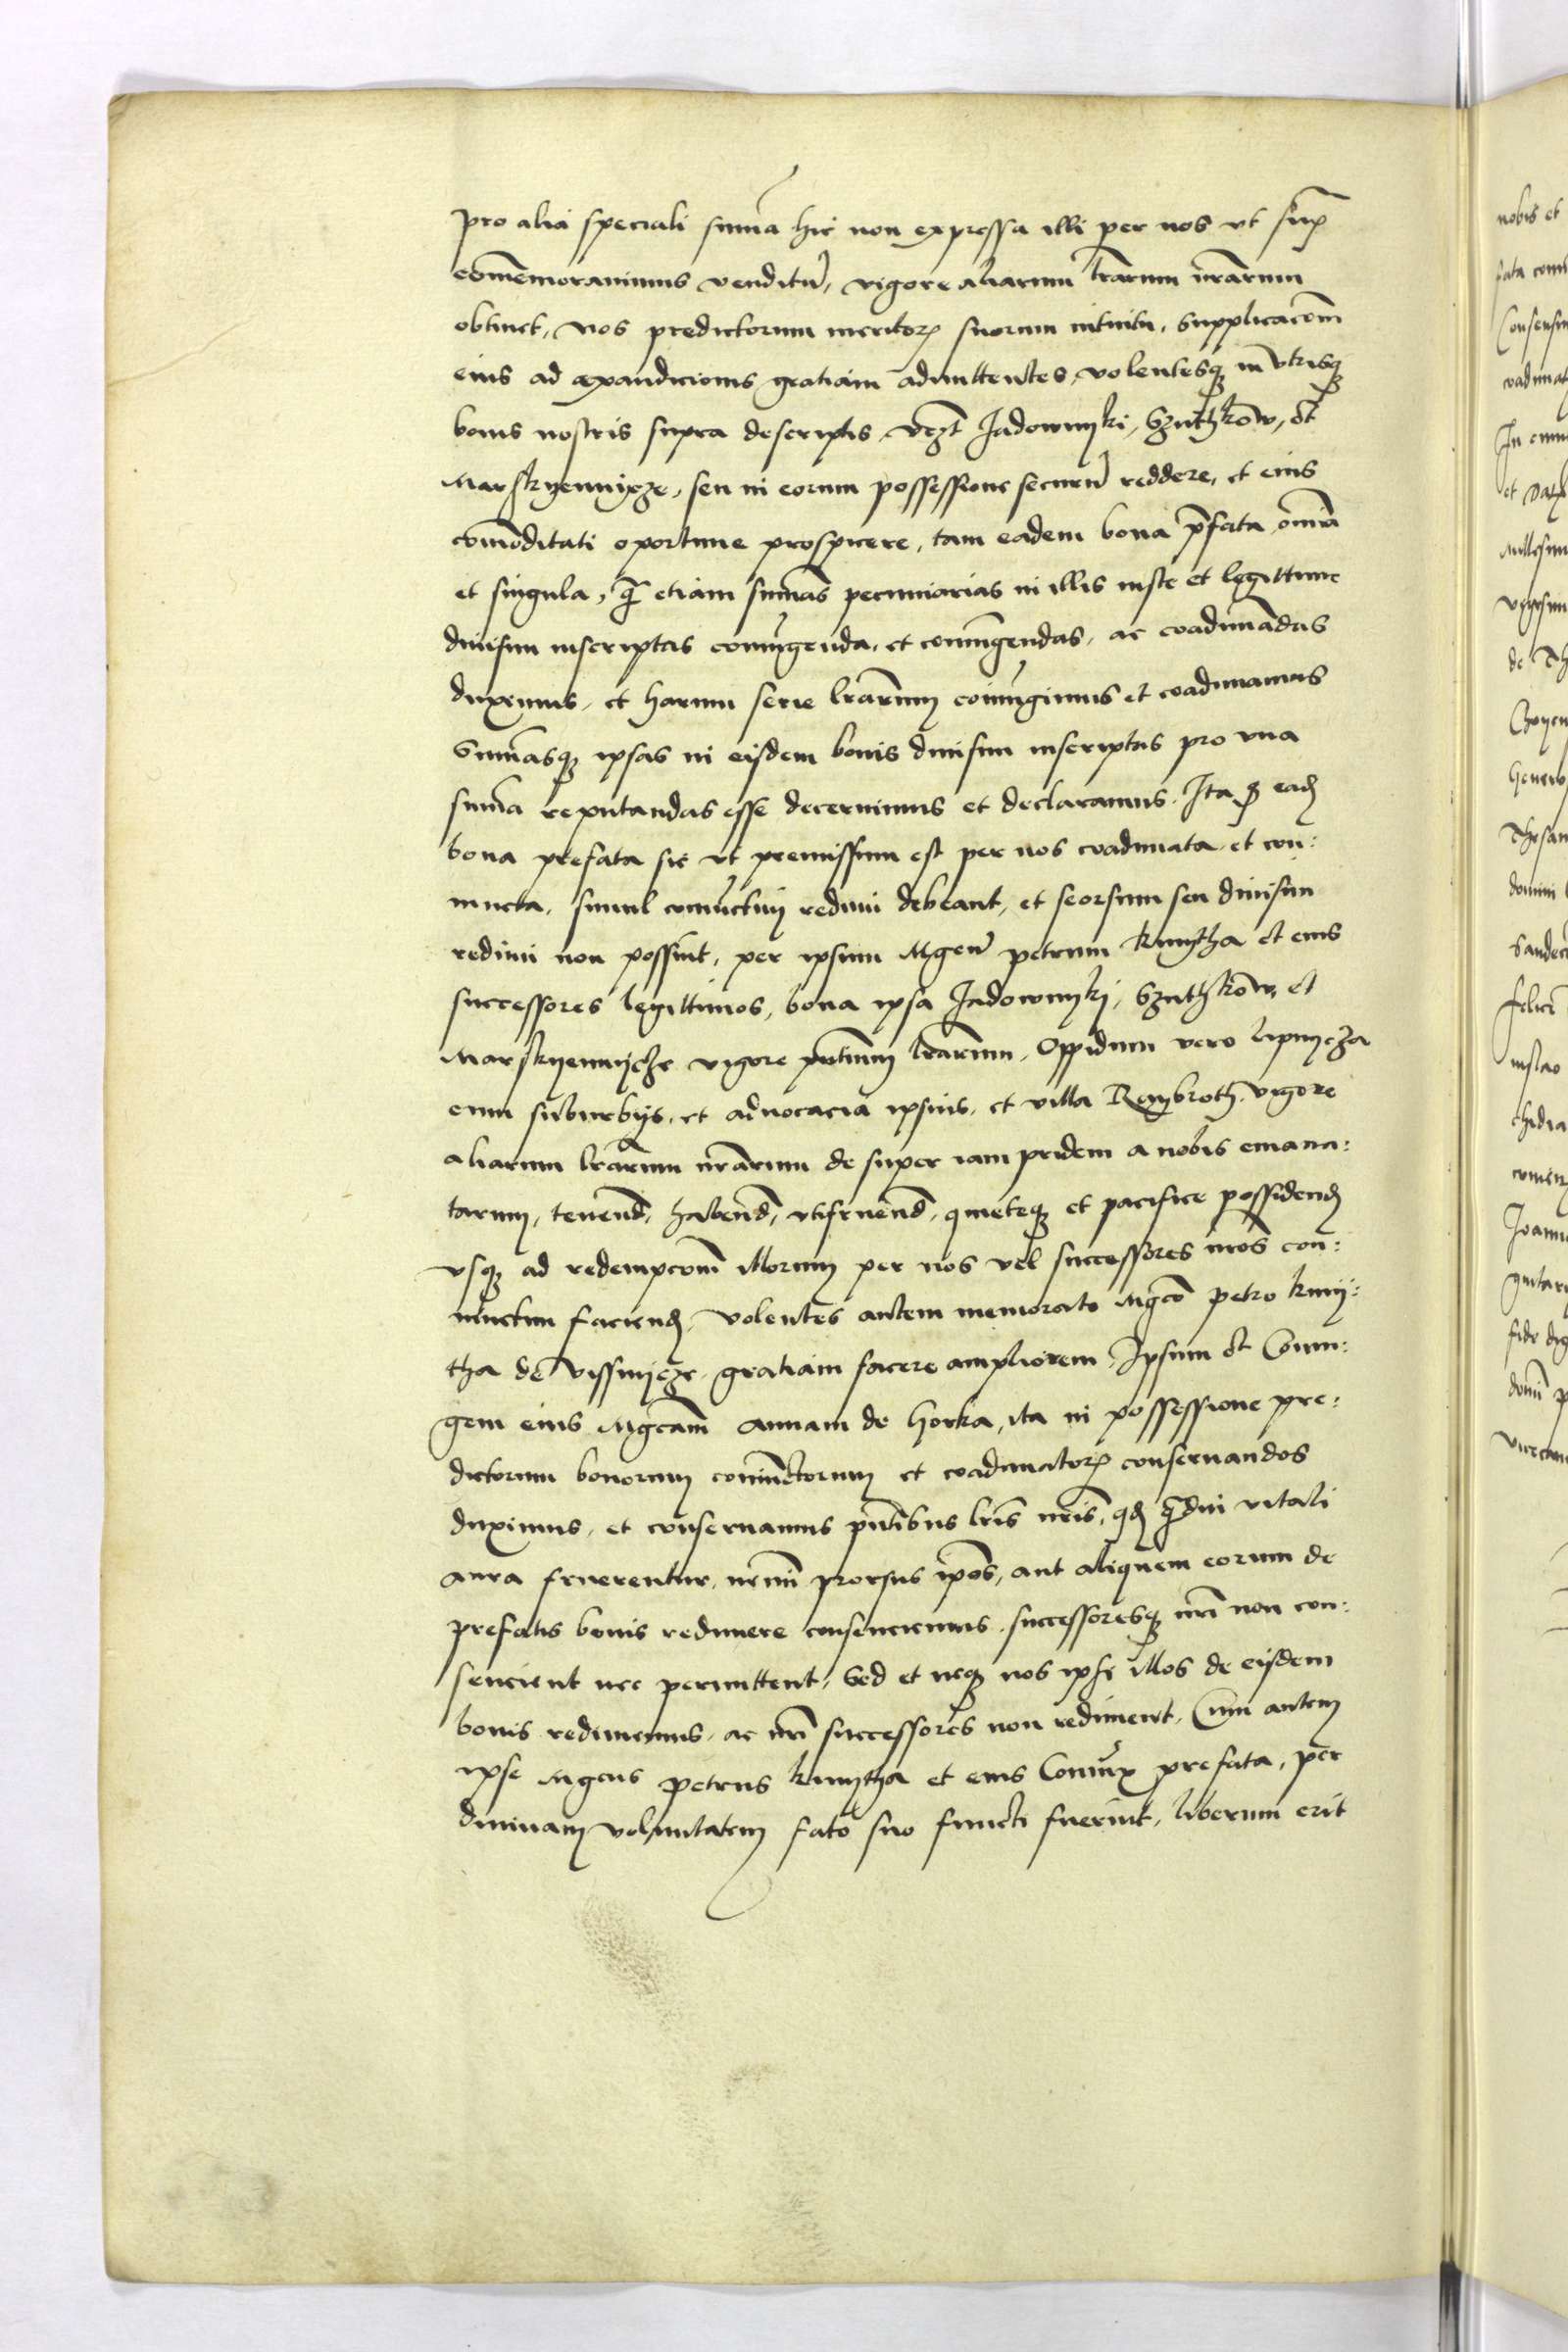 pro alia speciali sum̄a hic non expressa illi per nos vt sup̄
com̄emorauimus venditū, vigore aliarum lr̄arum nr̄arum
obtinet, Nos predictorum meritorꝝ suorum intuitu, supplicacōm̄
eius ad exaudicionis gratiam admittentes, volentesqꝫ in vtrisqꝫ
bonis nostris supra descriptis, vꝫt Jadownyki, Sznthkow, et
Marskyennycze, seu in eorum possessione securū reddere, et eius
com̄oditati oportune prospicere, tam eadem bona p̄fata om̄ia
et singula, q̄ etiam sum̄as pecuniarias in illis iuste et legittime
diuisim inscriptas coniūgenda, et coniūgendas, ac coadunādas
duximus, et harum serie lr̄arum coniūgimus et coadunamus
Sum̄asqꝫ ipsas in eisdem bonis diuisim inscriptas pro vna
sum̄a reputandas esse decernimus et declaramus. Ita ꝙ eadē
bona prefata sic vt premissum est per nos coadunata et con:
iuncta, simul coniūctim redimi debeant, et seorsum seu diuisim
redimi non possint, per ipsum Mgcū petrum kmytha et eius
successores legittimos, bona ipsa Jadownykj, Sznthkow, et
Marskyennycze vigore pn̄tium lr̄arum, Oppidum vero lipnycza
cum suburbijs, et aduocacia ipsius, et villa Raybroth, vigore
aliarum lr̄arum nr̄arum de super iam pridem a nobis emana:
tarum, tenend̄, habend̄, vtifruend̄, quieteqꝫ et pacifice possidend̄
vsqꝫ ad redempcōm̄ illorum per nos vel successores nr̄os con:
iunctim faciend̄, Volentes autem memorato Mgco petro kmy:
tha de vissnycze, gratiam facere ampliorem, Ipsum et Coniu:
gem eius Mgcam̄ annam de Gorka, ita in possessione pre:
dictorum bonorum coniūctorum et coadunatorꝝ conseruandos
duximus, et conseruamus pn̄tibus lr̄is nr̄is, qd̄ q̄diu vitali
aura fruerentur, nemini prorsus ip̄os, aut aliquem eorum de
prefatis bonis redimere consenciemus, successoresqꝫ nr̄i non con:
sencient nec permittent, Sed et neqꝫ nos ipsi illos de eisdem
bonis redimemus, ac nr̄i successores non rediment, Cum autem
ipse Mgcus petrus kmytha et eius Coniūx prefata, per
diuinam voluntatem fato suo functi fuerint, liberum erit